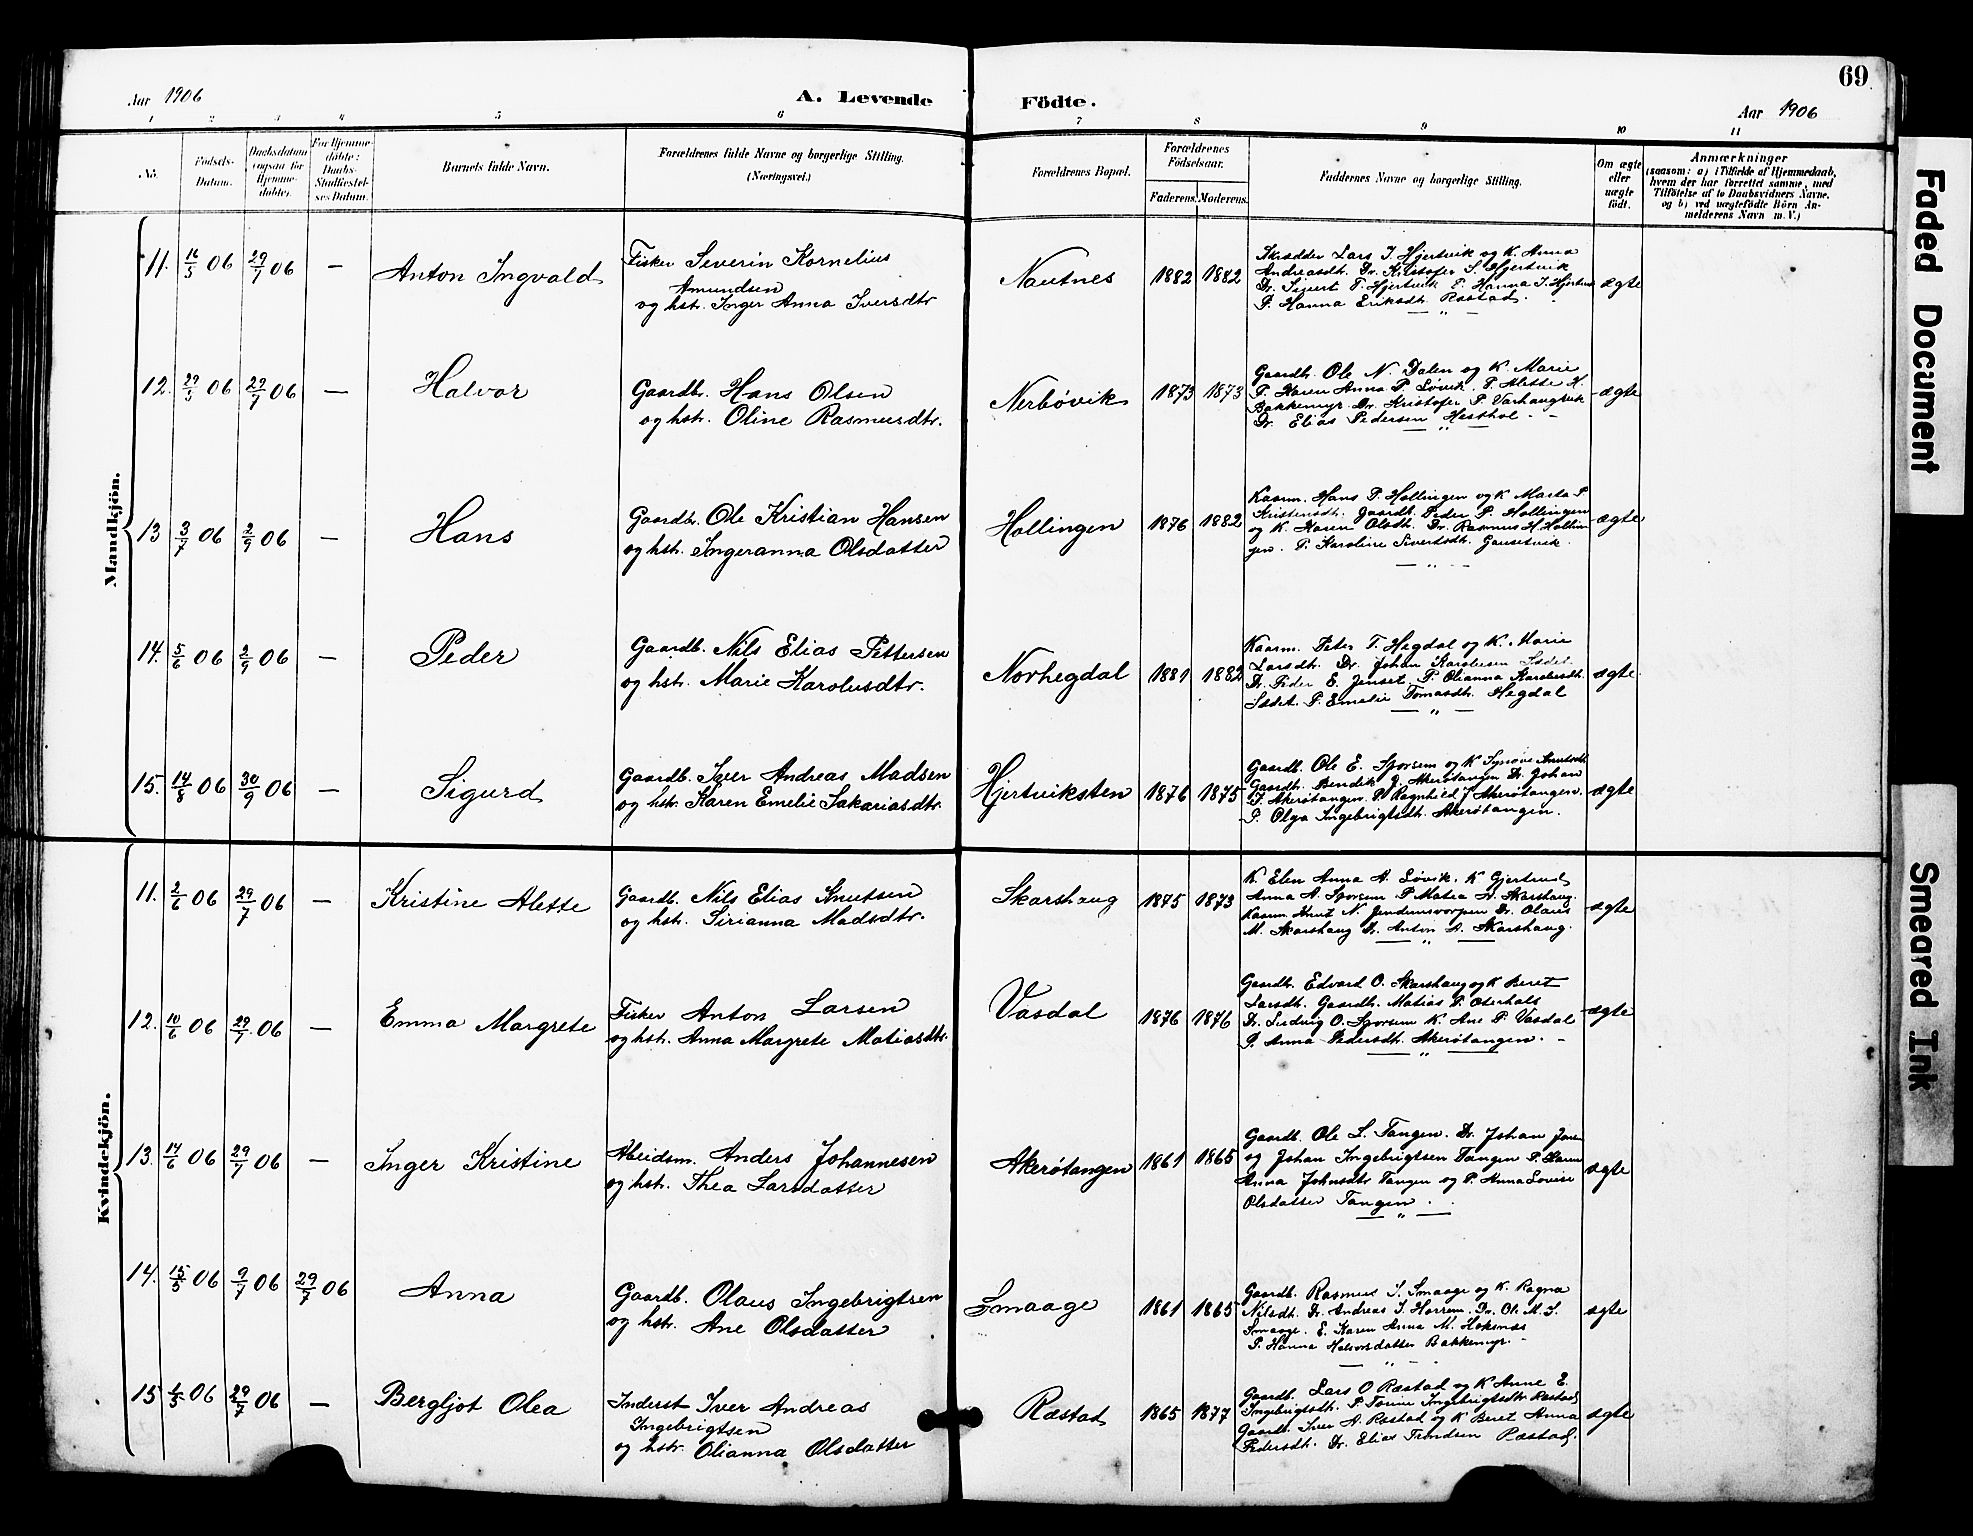 69
Aar 1906
A. Levende
Födte.
Aar 1906
1 2 3 4 5 6 7 8 9 10 11
No.
Födsels-
Datum.
Daabsdatum
(ogsaa for
Hjemme-
döbte).
For Hjemme-
döbte:
Daabs-
Stadfæstel-
ses Datum.
Barnets fulde Navn.
Forældrenes fulde Navne og borgerlige Stilling.
(Næringsvei.)
Forældrenes Bopæl.
Forældrenes
Födselsaar.
Faderens. Moderens.
Faddernes Navne og borgerlige Stilling.
Om ægte
eller
uægte
födt.
Anmærkninger
(saasom: a) i Tilfælde af Hjemmedaab,
hvem der har forrettet samme, med
Tilföielse af to Daabsvidners Navne,
og b) ved uægtefödte Börn An-
melderens Navn m. V.)
Mandkjön.
11. 16/5 06 29/7 06 — Anton Ingvald
Fisker Severin Kornelius
Amundsen
og hstr. Inger Anna Iversdtr
Nautnes 1882 1882
Skrædder Lars I Hjertvik og K. Anna
Andreasdt. Dr. Kristofer S. Hjertvik
Dr. Sivert T. Hjertvik P. Hanna I. Hjertvik
P. Hanna Eriksdt. Ræstad.
ægte
12. 29/5 06 29/7 06 — Halvor
Gaardb. Hans Olsen
og hstr. Oline Rasmusdtr.
Nerbövik 1873 1873
Gaardb. Ole N. Dalen og K. Marie
P. Karen Anna P. Lövik. P. Alette H.
Bakkemyr. Dr. Kristofer P. Varhaugvik
Dr. Elias Pedersen Hesthol.
ægte
13 3/7 06 2/9 06 — Hans
Gaardb. Ole Kristian Hansen
og hstr. Ingeranna Olsdatter
Hollingen 1876 1882
Kaarm. Hans P. Hollingen og K Marta P.
Kristensdt. Gaardb. Peder P. Hollingen
og K. Karen Olsdt. Dr. Rasmus H. Hollin
gen. P. Karoline Sivertsdt. Gausetvik.
ægte
14. 5/6 06 2/9 06 — Peder
Gaardb. Nils Elias Pettersen
og hstr. Marie Karolusdtr.
Norhegdal 1881 1882
Kaarm. Peter T. Hegdal og K. Marie
Larsdt. Dr. Johan Karolusen
Dr. Peder E. Jenset. P. Olianna Karolusdt.
P. Emelie Tomasdt. Hegdal
ægte
15. 14/8 06 30/9 06 — Sigurd
Gaardb. Iver Andreas Madsen
og hstr. Karen Emelie Sakariasdtr.
Hjertviksten 1876 1875
Gaardb. Ole E. Sporsem og K Synöve Knutsdt.
Gaardb. Bendik J. Akerötangen Dr. Johan
I. Akerötangen. P. Ragnhild J Akerötangen.
P. Olga Ingebrigtsdt. Akerötangen.
ægte
Kvindekjön.
11. 2/6 06 29/7 06 — Kristine Alette
Gaardb. Nils Elias Knutsen
og hstr. Sirianna Madsdtr.
Skarshaug 1875 1873
K. Elen Anna A. Lövik. K Gjertrud
Anna A. Sporsem P Matea A. Skarshaug.
Kaarm Knut N. Dr. Olaus
M. Skarshaug Dr. Anton A. Skarshaug.
ægte
12. 10/6 06 29/7 06 — Emma Margrete
Fisker Anton Larsen
og hstr. Anna Margrete Matiasdtr.
Vasdal 1876 1876
Gaardb. Edvard O. Skarshaug og K Beret
Larsdt. Gaardb. Matias P. Oterhals
Dr. Ludvig O. Sporsem K. Ane P. Vasdal
P. Anna Pedersdt. Akerötangen.
ægte
13. 14/6 06 29/7 06 — Inger Kristine
Arbeidsm. Anders Johannesen
og hstr. Thea Larsdatter
Akerötangen 1861 1865
Gaardb. Ole L. Tangen. Dr. Johan
og Johan Ingebrigtsen Tangen P. Karen
Anna Johnsdtr Tangen og P. Anna Lovise
Olsdatter Tangen.
ægte
14. 15/5 06 9/7 06 29/7 06 Anna
Gaardb. Olaus Ingebrigtsen
og hstr. Ane Olsdatter
Smaage 1861 1865
Gaardb. Rasmus I. Smaage og K. Ragna
Nilsdt. Dr. Andreas I. Harrem. Dr. Ol. M. I.
Smaage. E. Karen Anna M. Hoksnæs
P. Hanna Halvorsdatter Bakkemyr.
ægte
15 06 29/7 06 — Bergljot Olea
Inderst Iver Andreas
Ingebrigtsen
og hstr. Olianna Olsdatter
Ræstad 1865 1877
Gaardb. Lars O Ræstad og K Anne E.
Ingebrigtsdt. P Torine Ingebrigtsdtr Ræstad
Gaardb. Iver A. Ræstad og K Beret Anna
Pedersdt. Dr. Elias Ræstad.
ægte
Faded Document
Smeared Ink